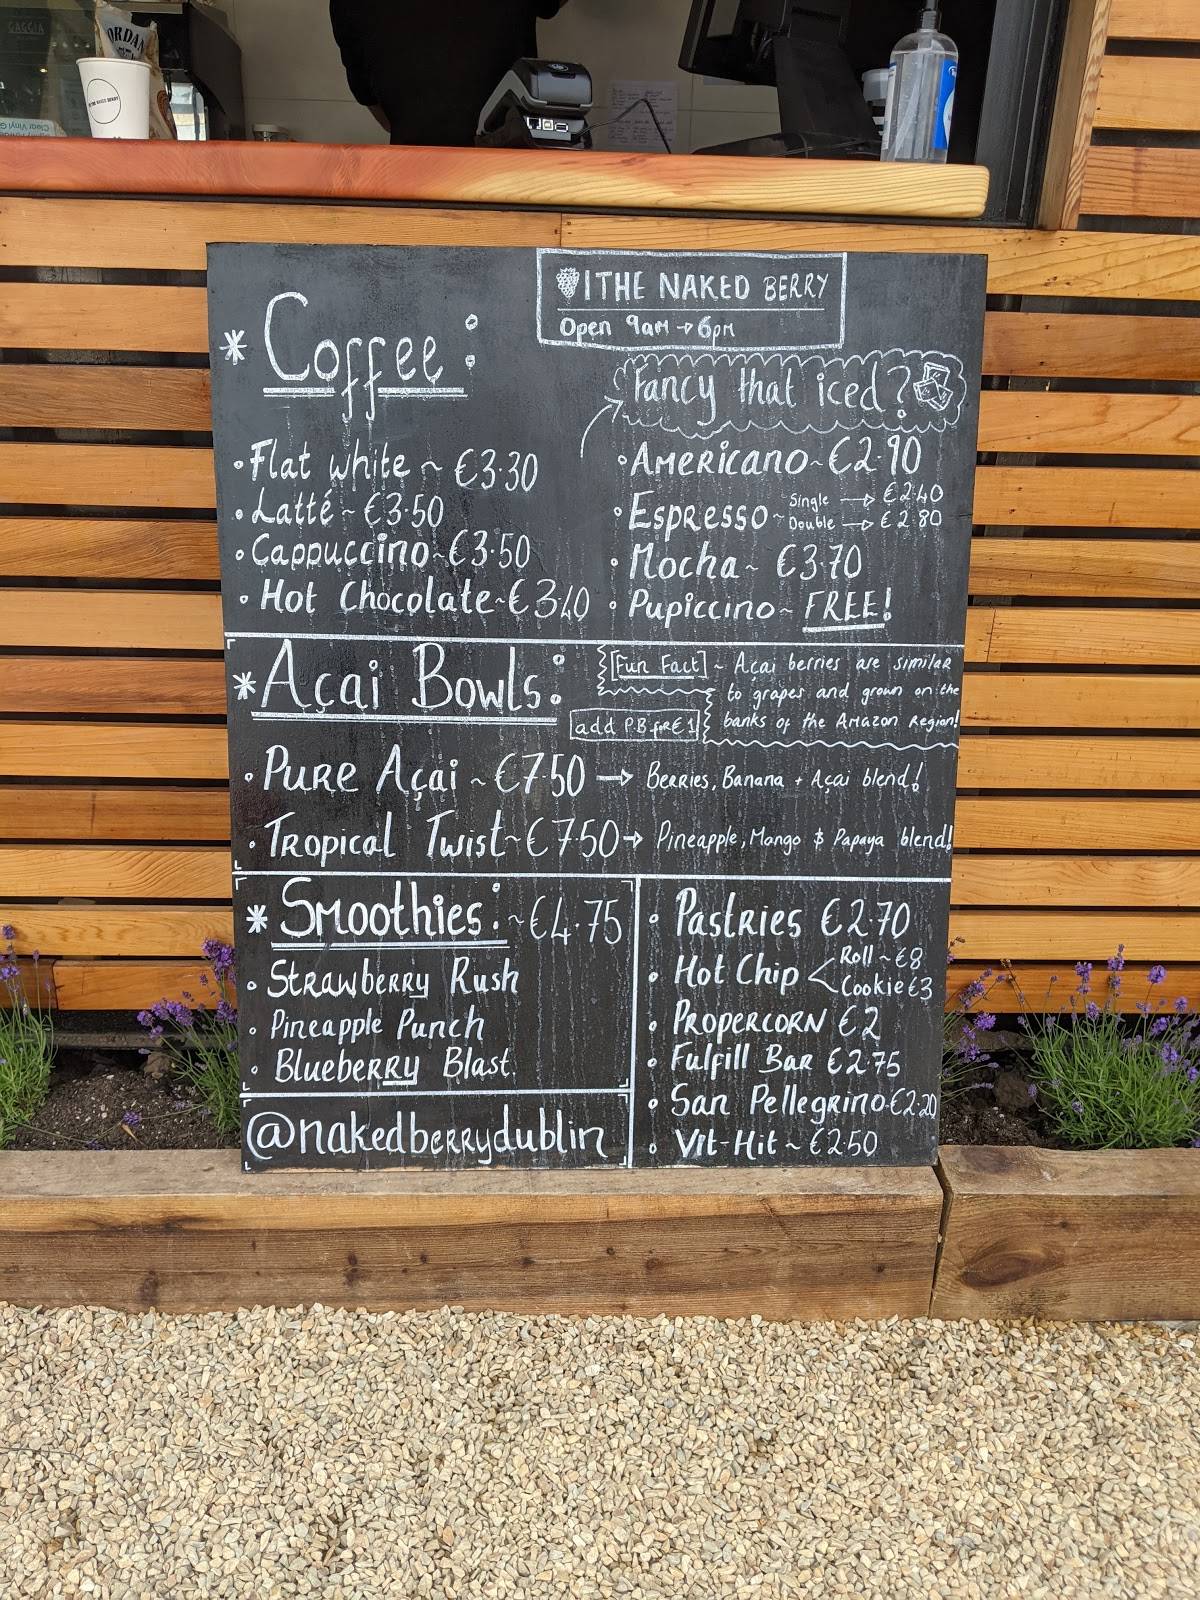 GAGGIA
ORDAN
THE NAKED BERRY
Clear Vinyl G
THE NAKED BERRY
Open 9am → 6pm
* Coffee:
Fancy that iced?
• Flat white ~ €3.30
• Latté ~ €3.50
• Cappuccino ~ €3.50
• Hot Chocolate ~ €3.40
• Americano ~ €2.90
• Espresso ~ Single → €2.40
Double → €2.80
• Mocha ~ €3.70
• Pupiccino ~ FREE!
* Açai Bowls:
[Fun Fact] ~ Açai berries are similar
to grapes and grown on the
banks of the Amazon Region!
add P.B for €1
• Pure Açai ~ €7.50 → Berries, Banana + Açai blend!
• Tropical Twist ~ €7.50 → Pineapple, Mango & Papaya blend!
* Smoothies: ~ €4.75
• Strawberry Rush
• Pineapple Punch
• Blueberry Blast.
@nakedberrydublin
• Pastries €2.70
• Hot Chip < Roll ~ €8
Cookie €3
• Propercorn €2
• Fulfill Bar €2.75
• San Pellegrino €2.20
• Vit-Hit ~ €2.50